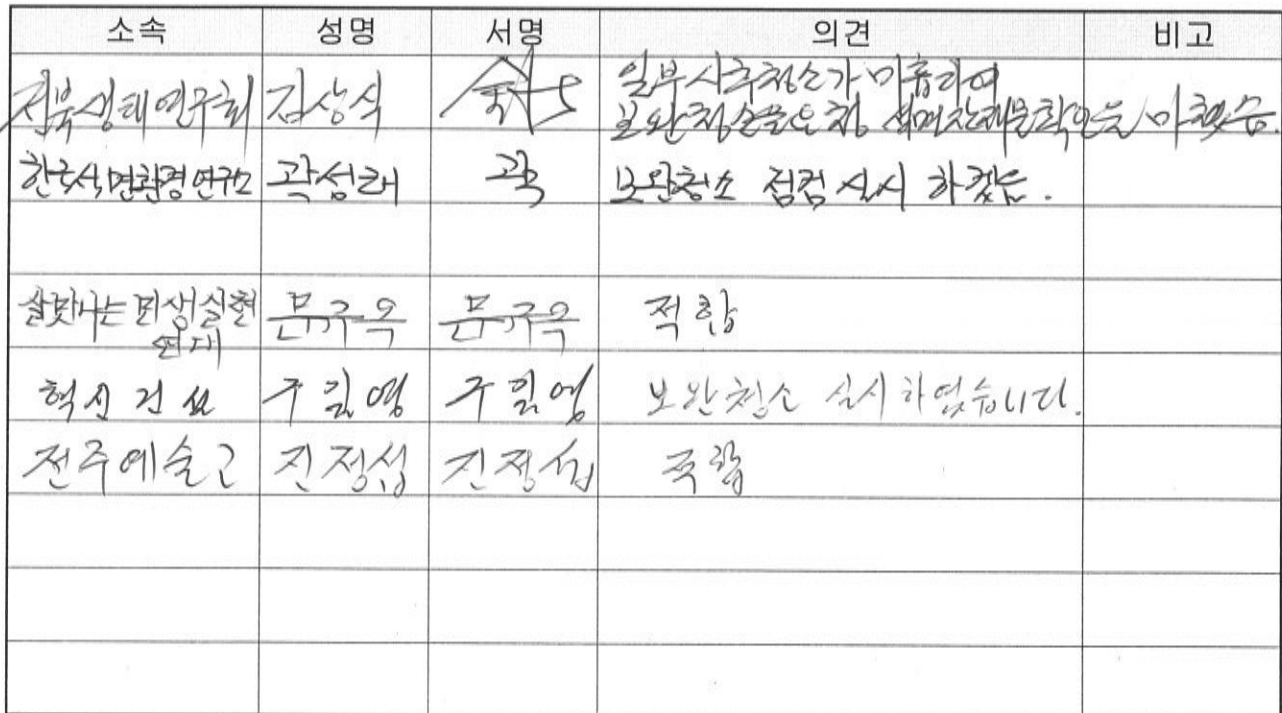 소속 성명 서명 의견 비고
전북생태연구회 김상식 일부 사후청소가 미흡하여
보완청소를 요청 석면잔재물확인을 마쳤음.
한국석면환경연구소 곽성래 곽 보완청소 점검 실시 하겠음.
살맛나는 민생실현 문규옥 문규옥 적합
연대
혁신건설 구일영 구일영 보완청소 실시하였습니다.
전주예술고 진정섭 진정섭 적합